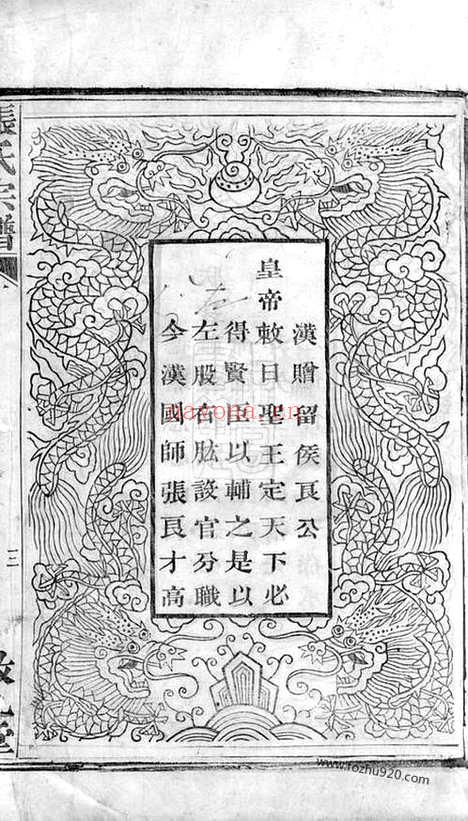 漢贈留侯良公
皇帝敕曰聖王定天下必
得賢臣以輔之是以
左股右肱設官分職
今漢國師張良才高
張氏宗譜
三
www.fozhu920.com